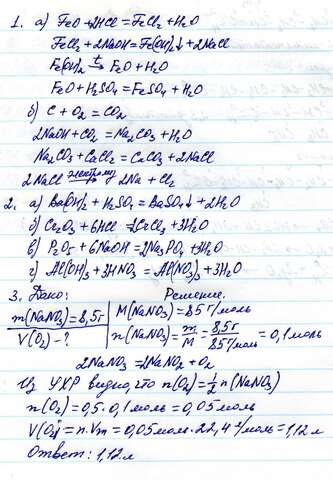 1. а) FeO + 2HCl = FeCl₂ + H₂O
FeCl₂ + 2NaOH = Fe(OH)₂↓ + 2NaCl
Fe(OH)₂ t→ FeO + H₂O
FeO + H₂SO₄ = FeSO₄ + H₂O
б) C + O₂ = CO₂
2NaOH + CO₂ = Na₂CO₃ + H₂O
Na₂CO₃ + CaCl₂ = CaCO₃ + 2NaCl
2NaCl → 2Na + Cl₂
2. а) Ba(OH)₂ + H₂SO₄ = BaSO₄↓ + 2H₂O
б) Cr₂O₃ + 6HCl = 2CrCl₃ + 3H₂O
в) P₂O₅ + 6NaOH = 2Na₃PO₄ + 3H₂O
г) Al(OH)₃ + 3HNO₃ = Al(NO₃)₃ + 3H₂O
3. Дано: Решение.
m(NaNO₃) = 8,5г M(NaNO₃) = 85 г/моль
V(O₂) - ? n(NaNO₃) = m/M = 8,5г/85г/моль = 0,1моль
2NaNO₃ = 2NaNO₂ + O₂
Из УХР видно, что n(O₂) = 1/2 n(NaNO₃)
n(O₂) = 0,5 · 0,1моль = 0,05моль
V(O₂) = n · Vm = 0,05моль · 22,4 л/моль = 1,12л
Ответ: 1,12л